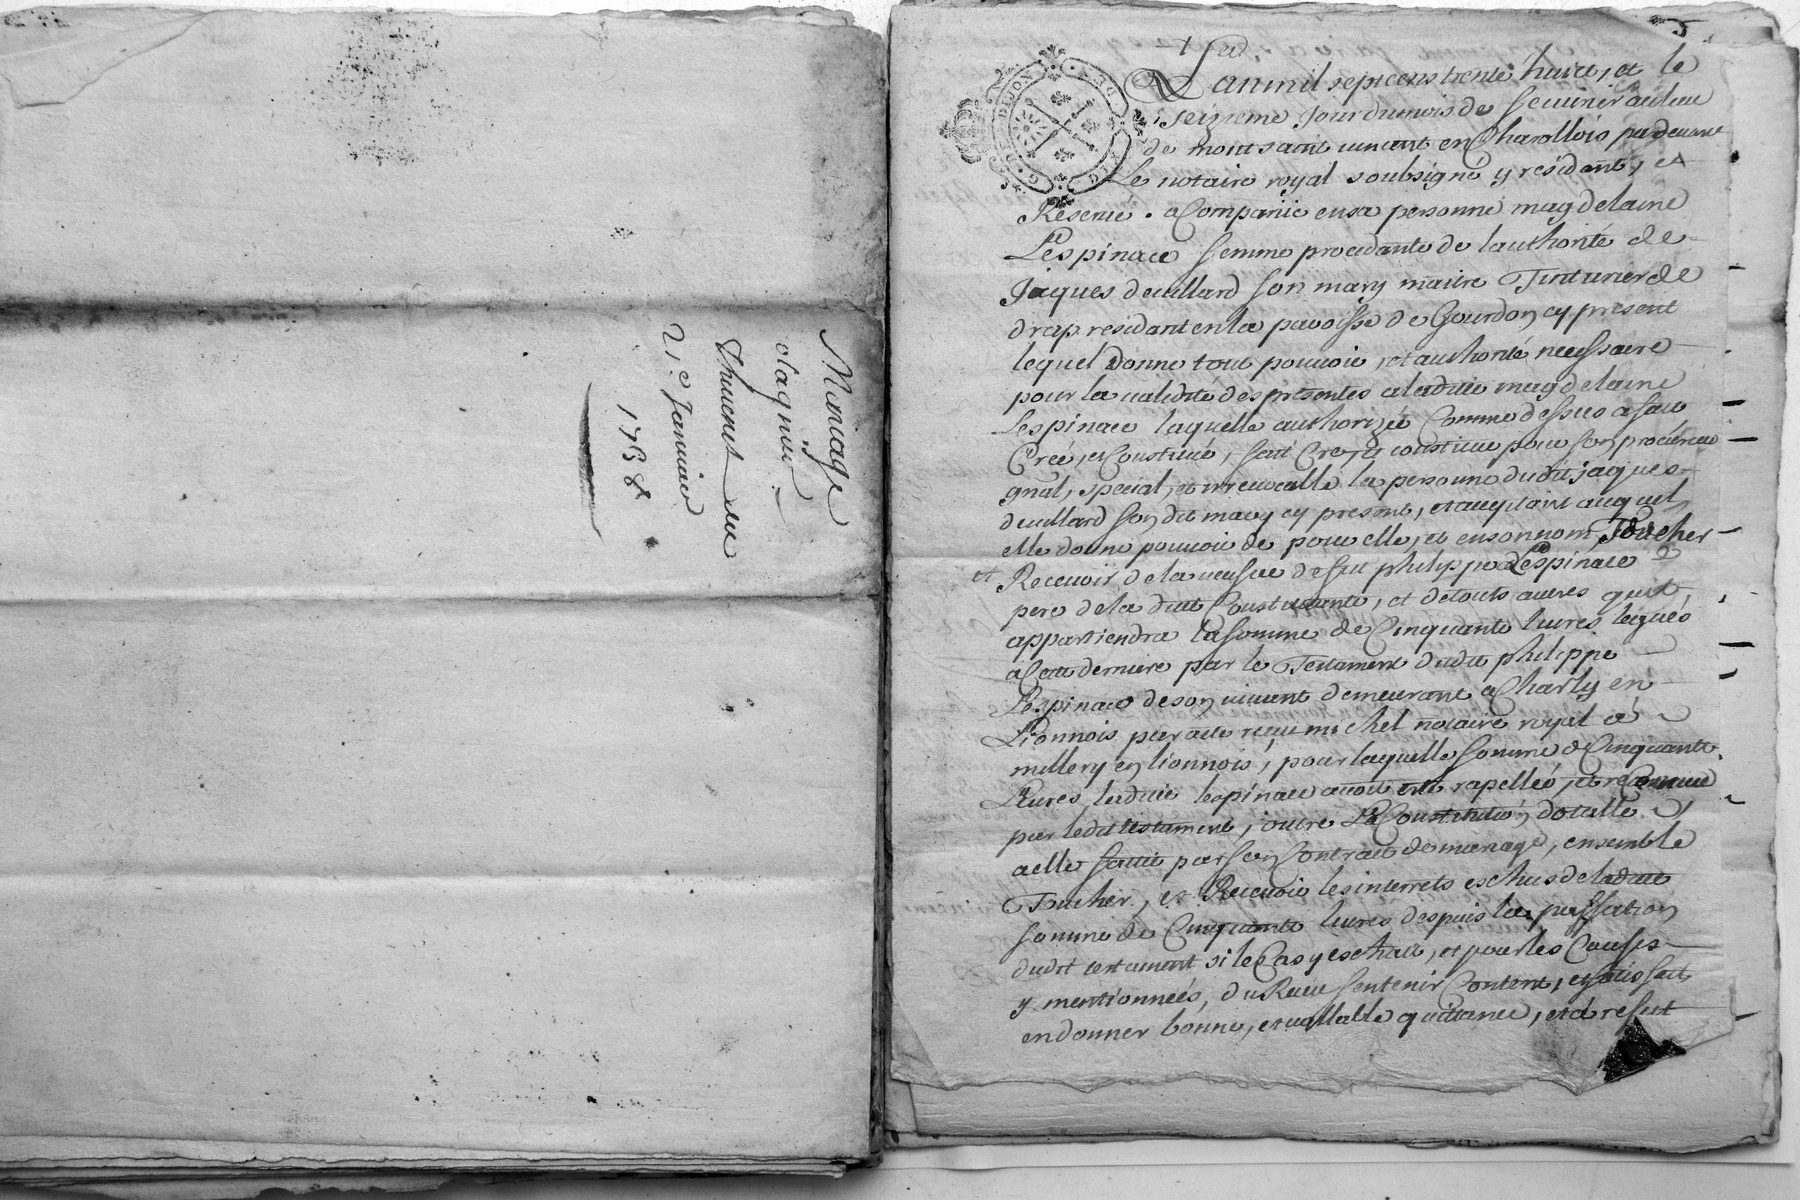 Mariage
olagnier
Thuvenet du
21e Janvier
1738
G. DE DIJON
5
Lan mil sept cens trente huict, et le
seizieme Jour du mois de fevrier au lieu
de mont saint vincent en Charollois pardevant
Le notaire royal soubsigné y residant, et
Reservé. a Comparüe en sa personne magdelaine
Lespinace femme procedante de lauthorité de
Jaques deuillard son mary maitre Tinturier de
drap residant en la paroisse de Gourdon cy present
lequel donne tout pouvoir, et authorité necessaire
pour la validité des presentes a ladite magdelaine
Lespinace laquelle authorizée Comme dessus a fait
Créé, et Constitué, fait Crée, et constitue pour son procureur
gnal, special, et irrevocable la personne dudit jaques
deuillard son dit mary cy present, et acceptant auquel
elle donne pouvoir de pour elle, et en son nom Toucher
et Recevoir de la veufve de feu philippe Lespinace
pere de la dite Constituante, et de touts autres quil
appartiendra la somme de Cinquante livres legués
a Cette derniere par le Testament dudit philippe
Lespinace de son vivant demeurant a Charly en
Lionnois par acte reçu michel notaire royal a
millery en lionnois, pour laquelle somme de Cinquante
Livres ladite lespinace avoit esté rapellée, et
par ledit testament, outre La Constitution dotalle
a elle faitte par son Contrait de mariage, ensemble
Toucher, et Recevoir les interrets eschus de ladite
somme de Cinquante livres despuis la passation
dudit testament si le Cas y eschait, et pour les Causes
y mentionneés, du Recu sentenir Content, et satisfait
en donner bonne, et vallable quittance, et a refut